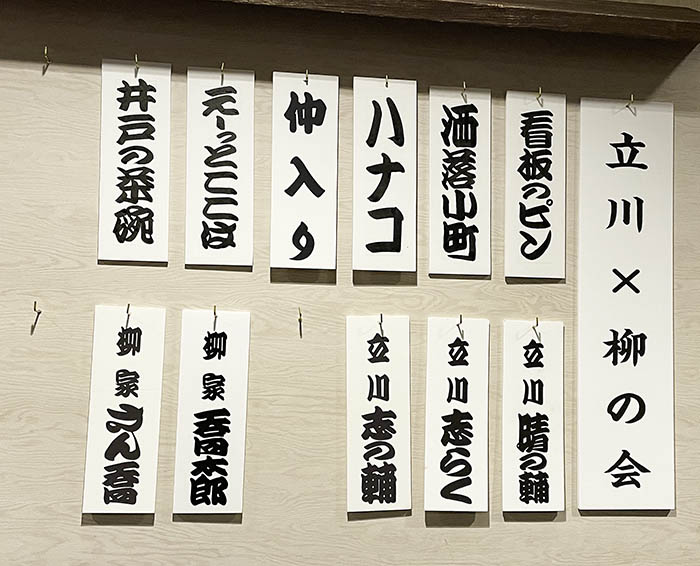 立川×柳の会
看板のピン
洒落小町
ハナコ
仲入り
えーっとここは
井戸の茶碗
立川 晴の輔
立川 志らく
立川 志の輔
柳家 喬太郎
柳家 さん喬